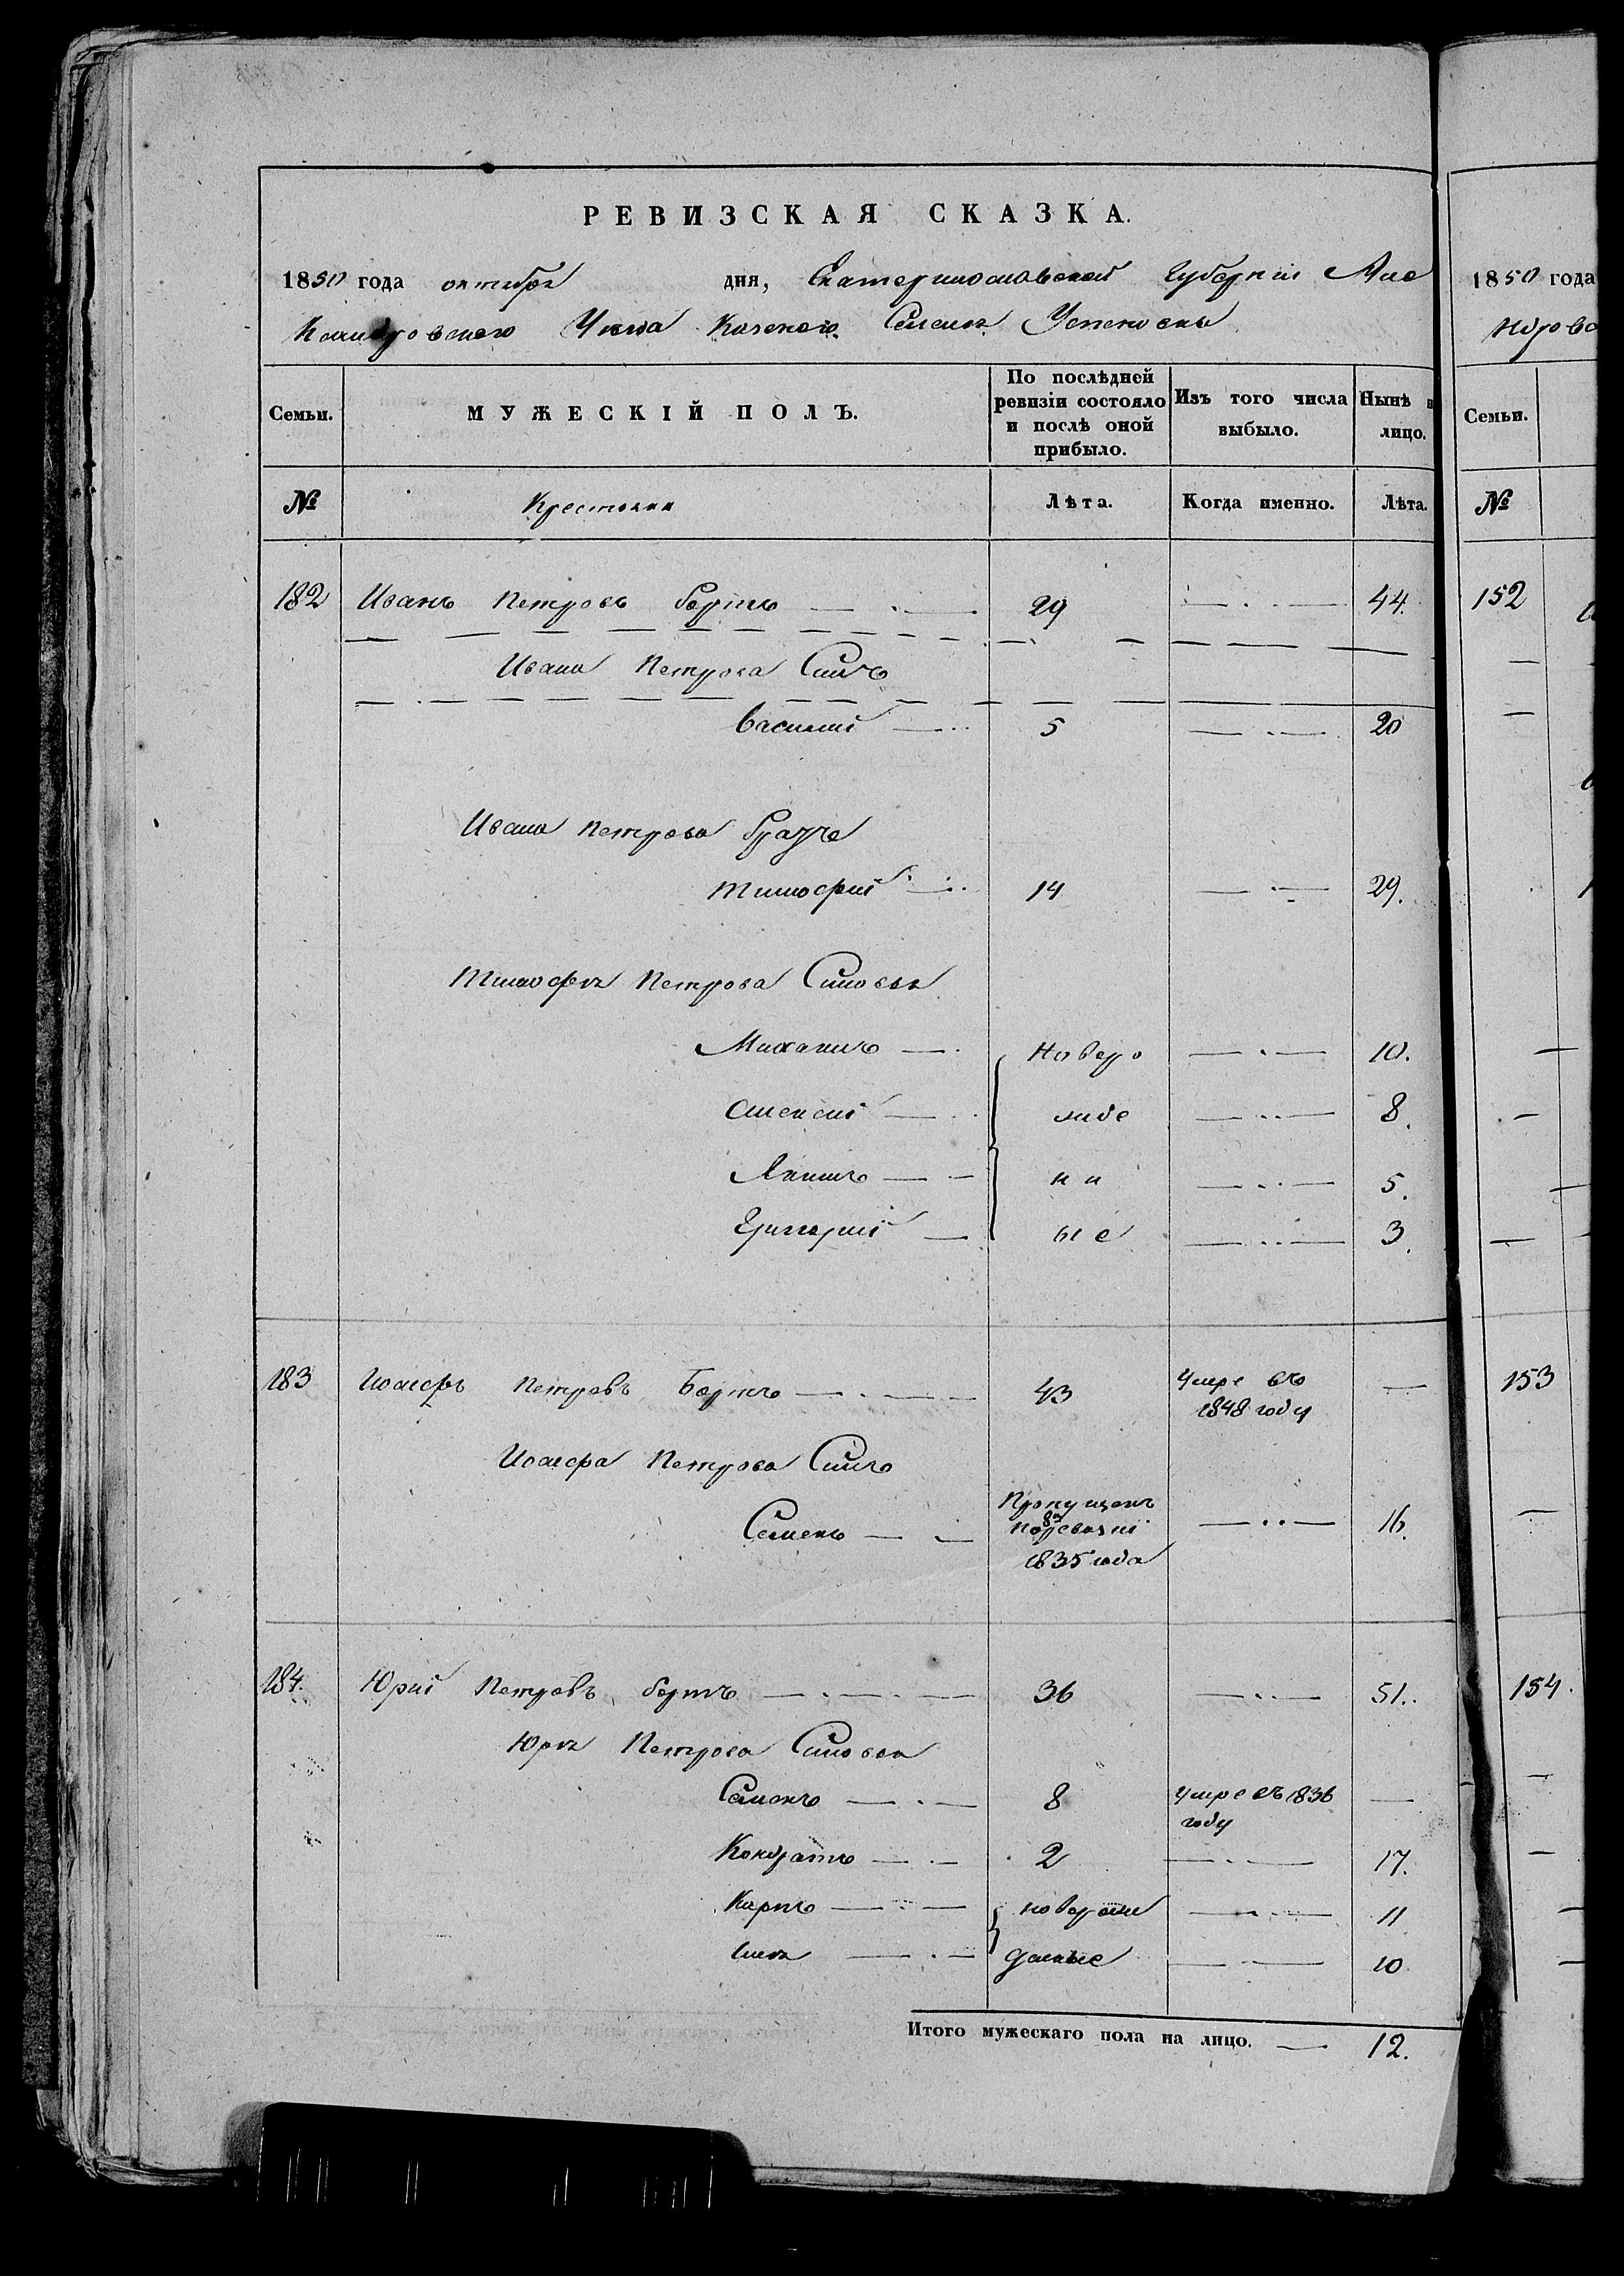 РЕВИЗСКАЯ СКАЗКА.
1850 года октября дня, Екатеринославской Губернiи Алек
сандровского Уезда Казеного Селенiя Успеновки
Семьи. МУЖЕСКIЙ ПОЛЪ. По послѣдней ревизiи состояло и послѣ оной прибыло. Изъ того числа выбыло. Нынѣ н лицо.
№ Крестьяни Лѣта. Когда именно. Лѣта.
182 Иванъ Петровъ Бортъ — . — 29 — . — 44.
Ивана Петрова Сынъ
Василий — 5 — . — 20
Ивана Петрова братъ
Тимофей — 14 — . — 29.
Тимофея Петрова Сыновья
Михаилъ — новоро — . — 10.
Алексей — жде — . — 8.
Якимъ — нн — . — 5.
Григорий — ые — . — 3.
183 Иосифъ Петровъ Бортъ — . — 43 Умре въ 1848 году —
Иосифа Петрова Сынъ
Семенъ — Пропущенъ по 8й ревизiи 1835 года — . — 16.
184. Юрий Петровъ бортъ — . — . — 36 — . — 51.
Юрия Петрова Сыновья
Семенъ — . — 8 умре въ 1836 году —
Кондратъ — . — 2 — . — 17.
Карпъ — . — новорож — . — 11
Илья — . — даные — . — 10
Итого мужескаго пола на лицо. — 12.
1850 года
ндровс
Семьи.
№
152
153
154.